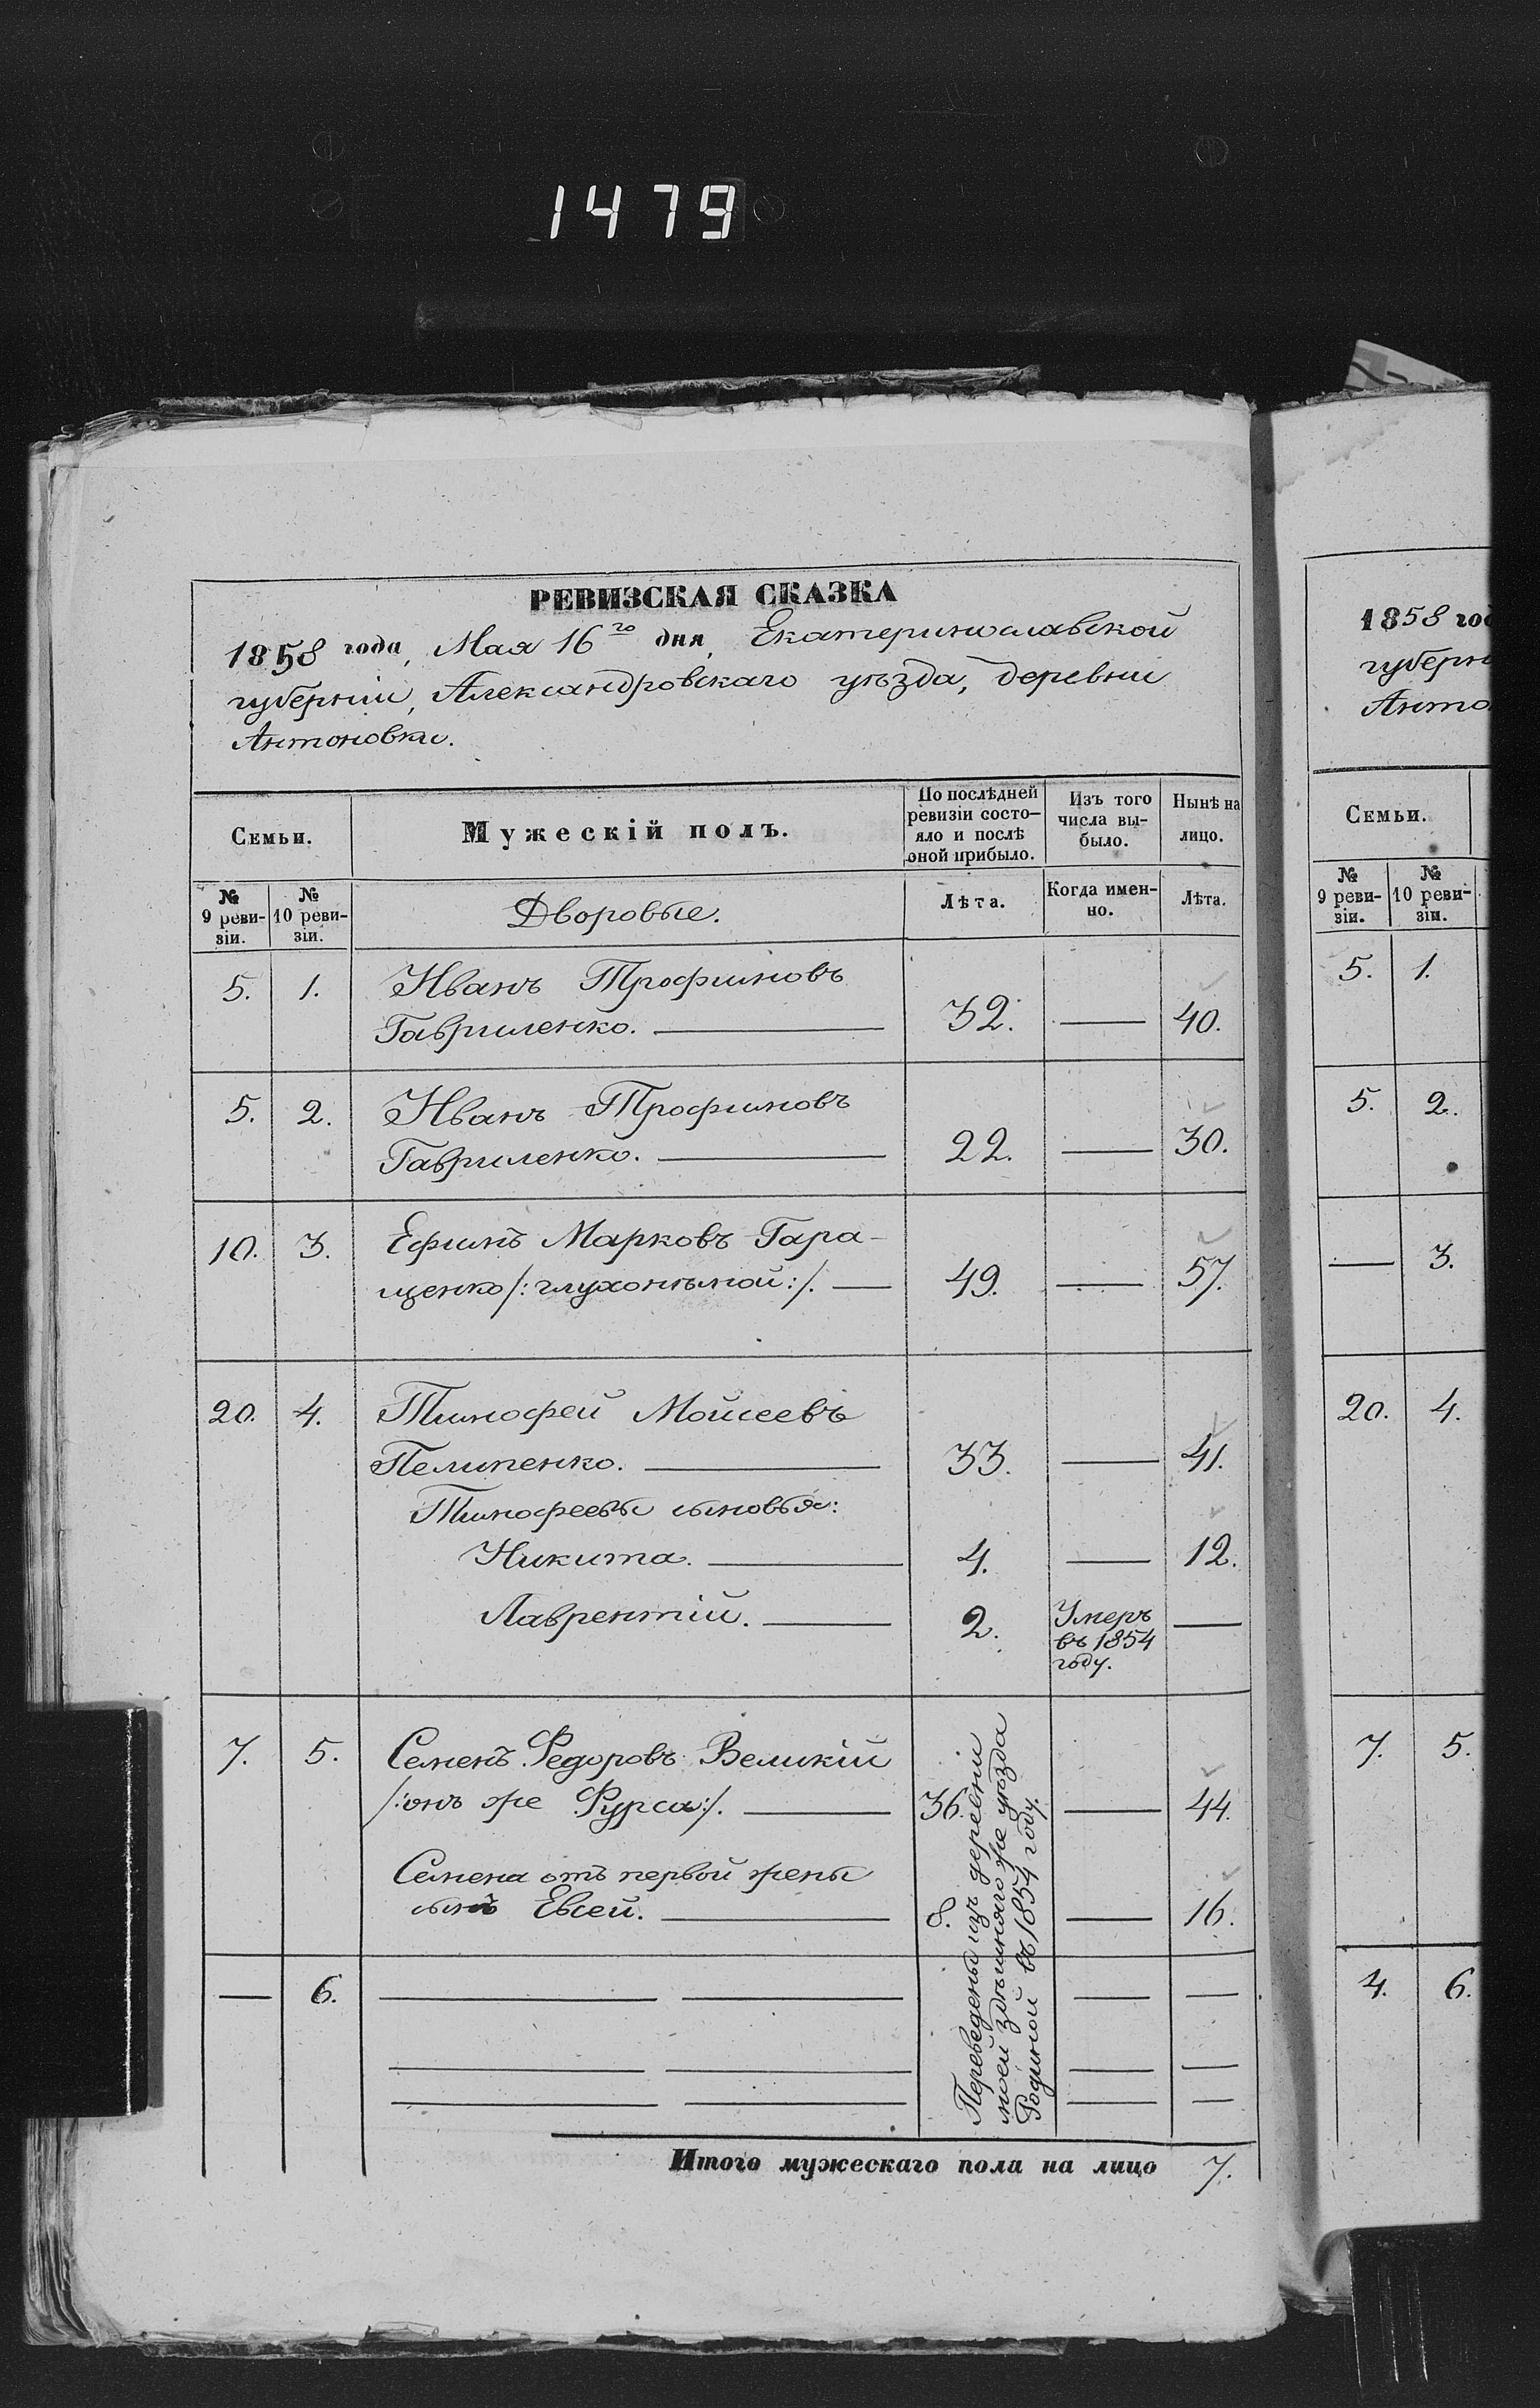 1479
РЕВИЗСКАЯ СКАЗКА
1858 года, Мая 16го дня, Екатеринославской
губерніи, Александровскаго уѣзда, деревни
Антоновки.
Семьи.
Мужескій полъ.
По послѣдней
ревизіи состо-
яло и послѣ
оной прибыло.
Изъ того
числа вы-
было.
Нынѣ на
лицо.
№
9 реви-
зіи.
№
10 реви-
зіи.
Дворовые.
Лѣта.
Когда имен-
но.
Лѣта.
5. 1. Иванъ Трофимовъ
Гавриленко. 32. 40.
5. 2. Иванъ Трофимовъ
Гавриленко. 22. 30.
10. 3. Ефимъ Марковъ Гара-
щенко /:глухонѣмой:/. 49. 57.
20. 4. Тимофей Мойсеевъ
Пелипенко. 33. 41.
Тимофеевы сыновья:
Никита. 4. 12.
Лаврентій. 2. Умеръ
въ 1854
году.
7. 5. Семенъ Федоровъ Великій
/:онъ же Фурса:/. 36. 44.
Семена отъ первой жены
сынъ Евсей. 8. 16.
Переведены изъ деревни
моей здѣшняго же уѣзда
Родиной въ 1854 году.
6.
Итого мужескаго пола на лицо 7.
1858 год
губерн
Анто
Семьи.
№
9 реви-
зіи.
№
10 реви-
зіи.
5. 1.
5. 2.
3.
20. 4.
7. 5.
4. 6.